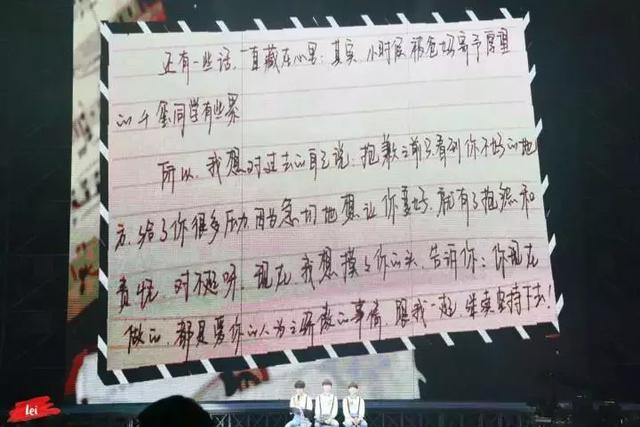 还有一些话,一直藏在心里,其实,小时候被爸妈寄予厚望
的千玺同学有些累
所以,我想对过去的自己说:抱歉之前只看到你不好的地
方,给了你很多压力,因为急切地想让你更好,就有了抱怨和
责怪,对不起呀,现在,我想摸摸你的头,告诉你:你现在
做的,都是爱你的人为之骄傲的事情,跟我一起,继续坚持下去!
lei